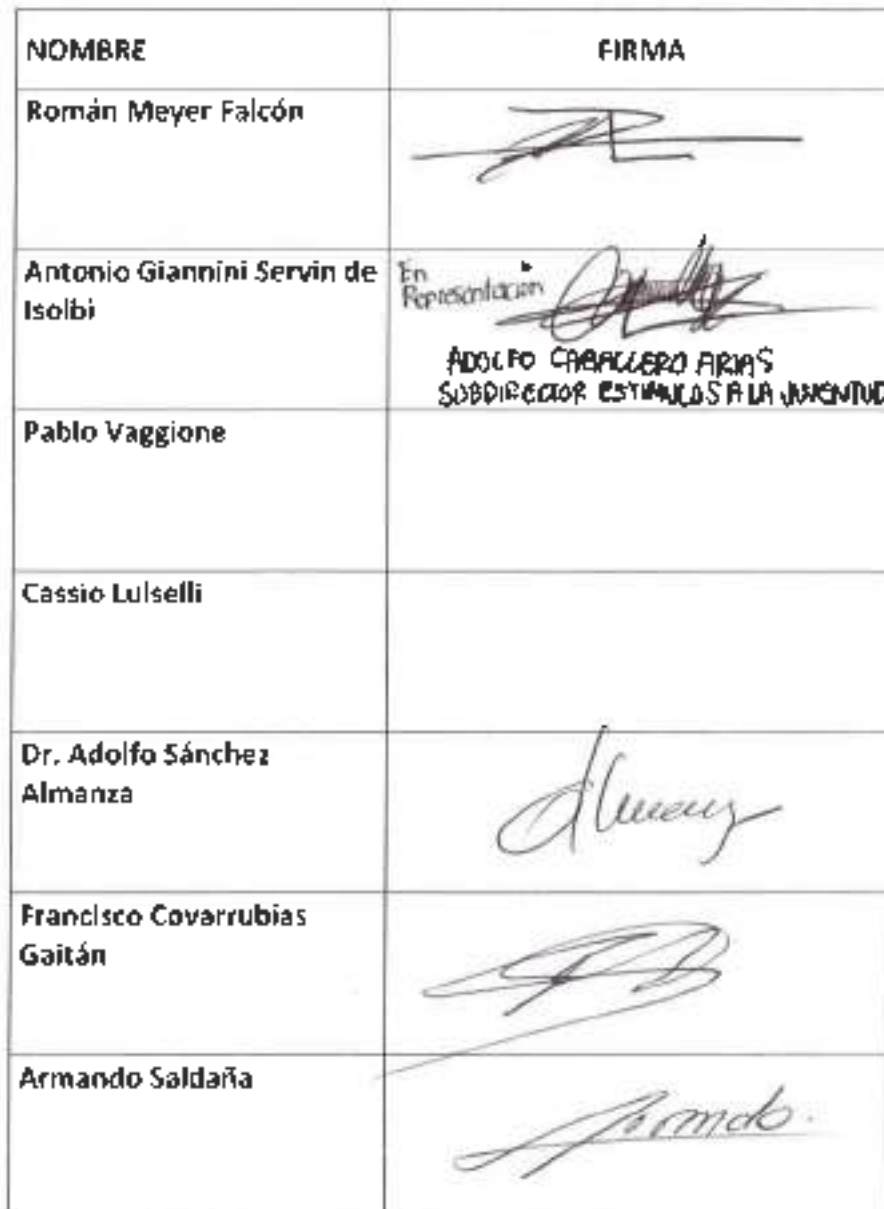 NOMBRE
FIRMA
Román Meyer Falcón
Antonio Giannini Servin de
Isolbi
En
Representacion
ADOLFO CABALLERO ARIAS
SUBDIRECTOR ESTIMULOS A LA JUVENTUD
Pablo Vaggione
Cassio Luiselli
Dr. Adolfo Sánchez
Almanza
Francisco Covarrubias
Gaitán
Armando Saldaña
Armando.